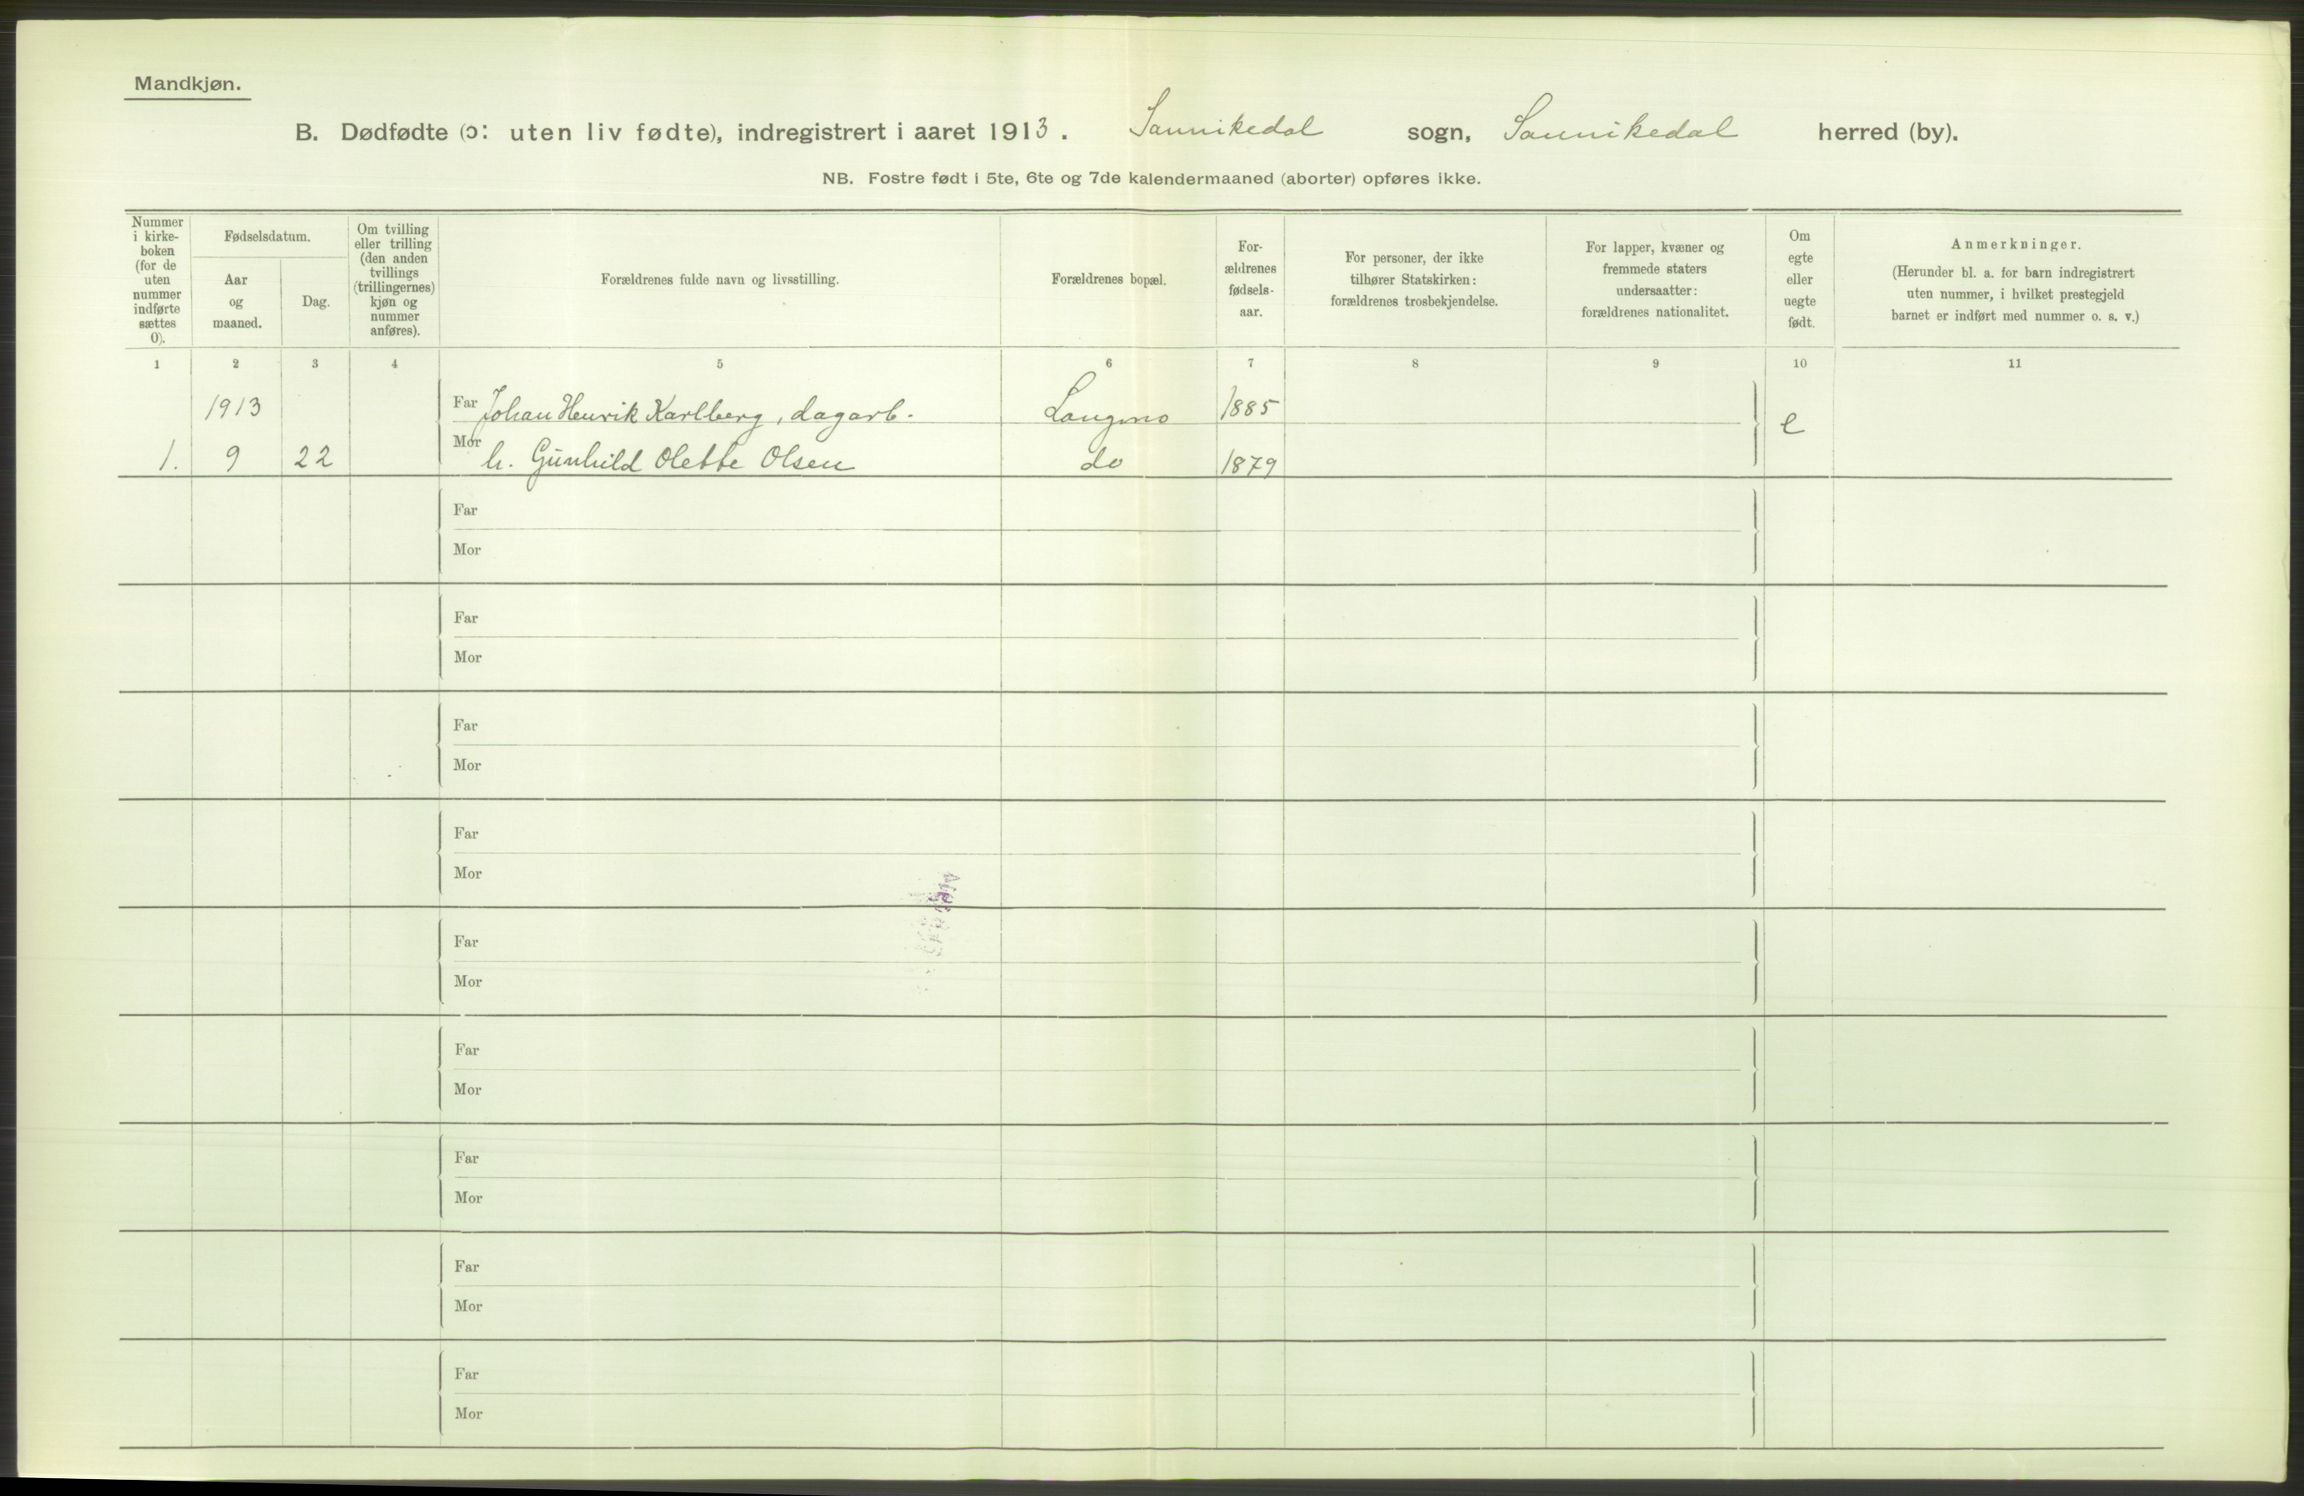 Mandkjøn.
B. Dødfødte (ɔ: uten liv fødte), indregistrert i aaret 1913. Sannikedal sogn, Sannikedal herred (by).
NB. Fostre født i 5te, 6te og 7de kalendermaaned (aborter) opføres ikke.
Nummer
i kirke-
boken
(for de
uten
nummer
indførte
sættes
0).
Fødselsdatum.
Aar
og
maaned.
Dag.
Om tvilling
eller trilling
(den anden
tvillings
(trillingernes)
kjøn og
nummer
anføres).
Forældrenes fulde navn og livsstilling.
Forældrenes bopæl.
For-
ældrenes
fødsels-
aar.
For personer, der ikke
tilhører Statskirken:
forældrenes trosbekjendelse.
For lapper, kvæner og
fremmede staters
undersaatter:
forældrenes nationalitet.
Om
egte
eller
uegte
født.
Anmerkninger.
(Herunder bl. a. for barn indregistrert
uten nummer, i hvilket prestegjeld
barnet er indført med nummer o. s. v.)
1 2 3 4 5 6 7 8 9 10 11
1913 Far Johan Henrik Karlberg, dagarb. Langmo 1885 e
1. 9 22 Mor h. Gunhild Olette Olsen do 1879
Far
Mor
Far
Mor
Far
Mor
Far
Mor
Far
Mor
Far
Mor
Far
Mor
Far
Mor
Far
Mor